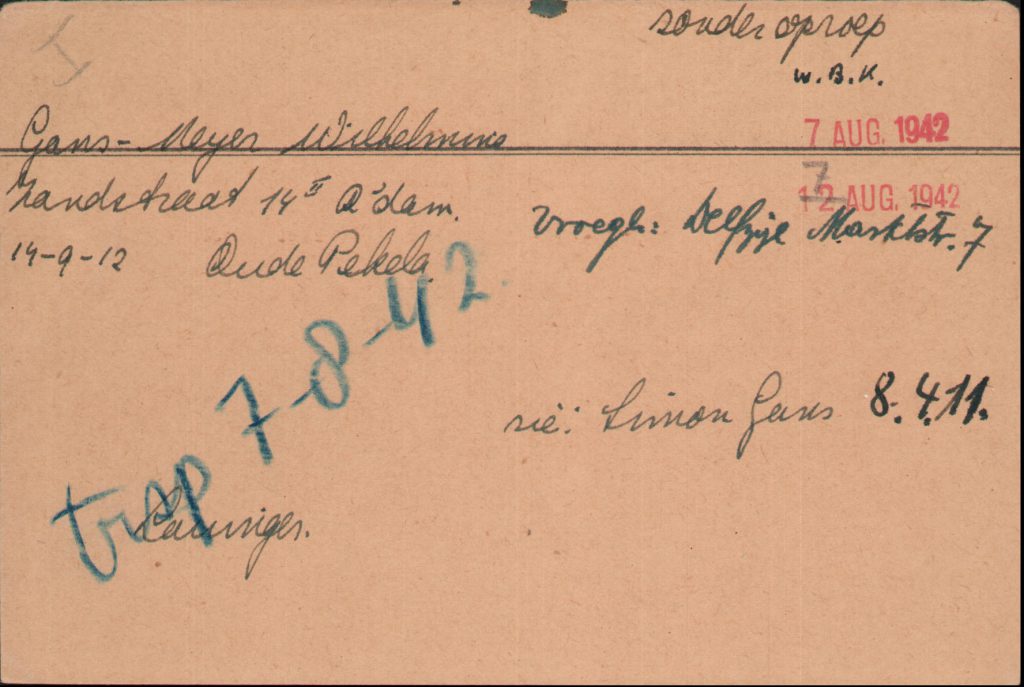 I
zonder oproep
W.B.K.
7 AUG. 1942
Gans-Meyer Wilhelmina
7
12 AUG. 1942
Zandstraat 14 II A'dam.
Vroegh: Delfzijl Marktstr. 7
14-9-12 Oude Pekela
trap 7-8-42.
zie: Simon Gans 8.4.11.